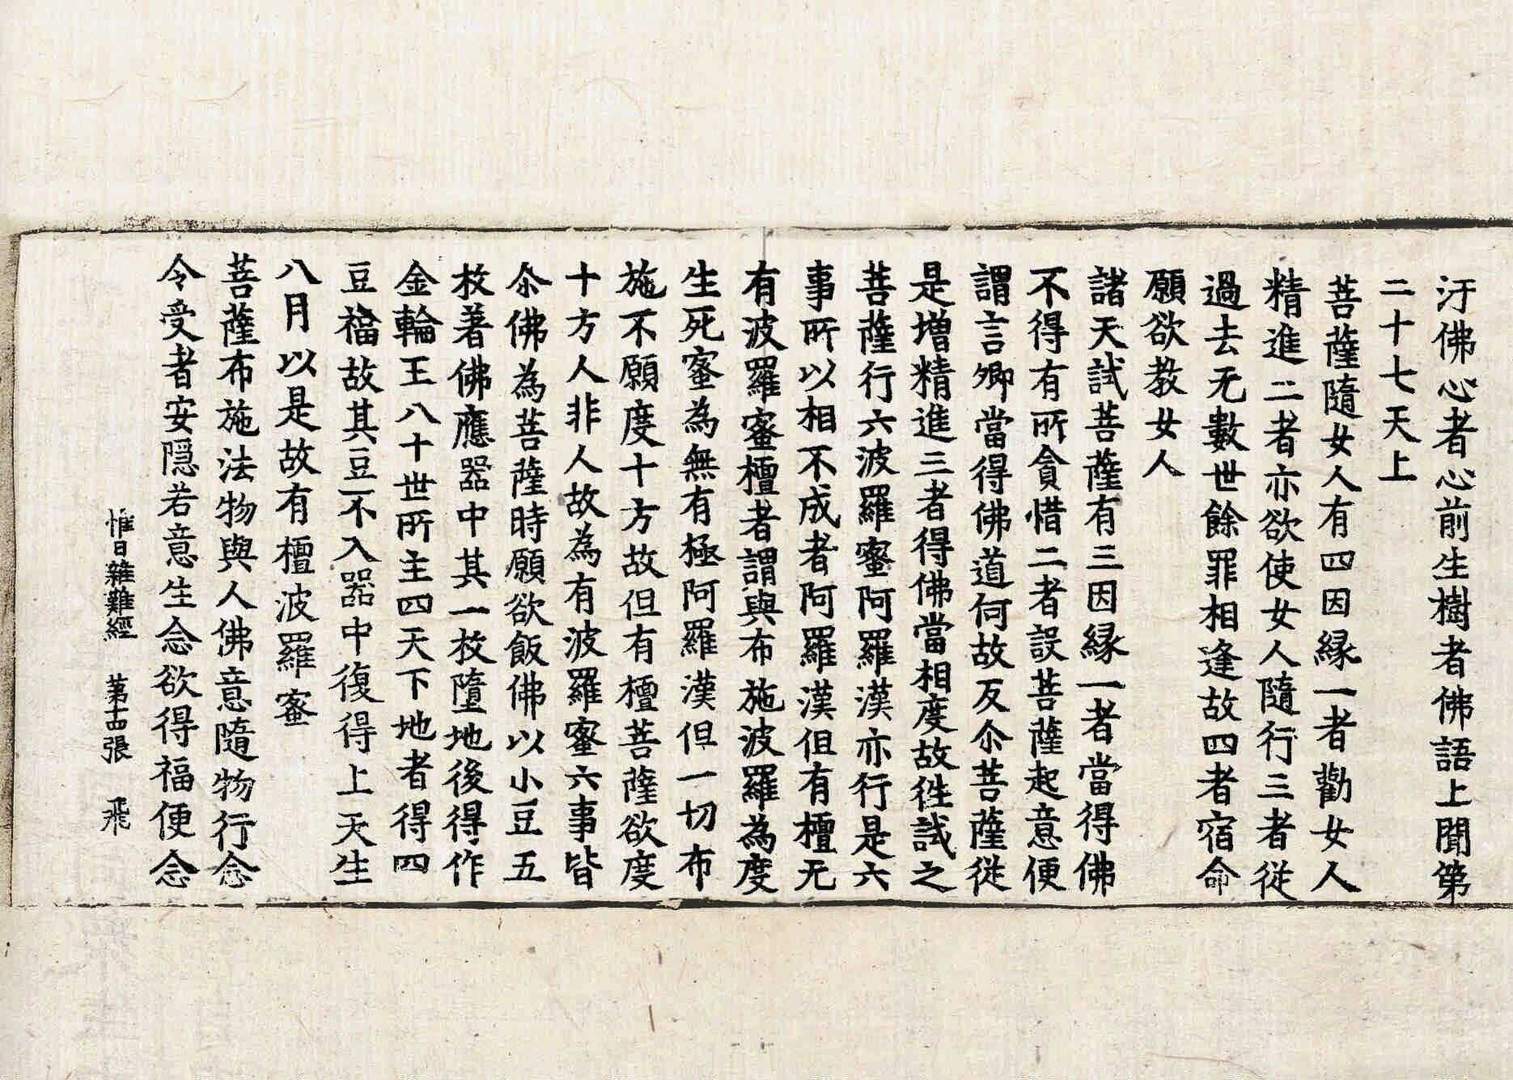 汙佛心者心前生樹者佛語上聞第
二十七天上
菩薩隨女人有四因緣一者勸女人
精進二者亦欲使女人隨行三者従
過去无數世餘罪相逢故四者宿命
願欲教女人
諸天試菩薩有三因緣一者當得佛
不得有所貪惜二者誤菩薩起意便
謂言卿當得佛道何故反尒菩薩従
是增精進三者得佛當相度故徃試之
菩薩行六波羅蜜阿羅漢亦行是六
事所以相不成者阿羅漢但有檀无
有波羅蜜檀者謂與布施波羅為度
生死蜜為無有極阿羅漢但一切布
施不願度十方故但有檀菩薩欲度
十方人非人故為有波羅蜜六事皆
尒佛為菩薩時願欲飯佛以小豆五
枚著佛應器中其一枚墮地後得作
金輪王八十世所主四天下地者得四
豆福故其豆不入器中復得上天生
八月以是故有檀波羅蜜
菩薩布施法物與人佛意隨物行念
令受者安隱若意生念欲得福便念
惟日雜難經 第十四張 飛